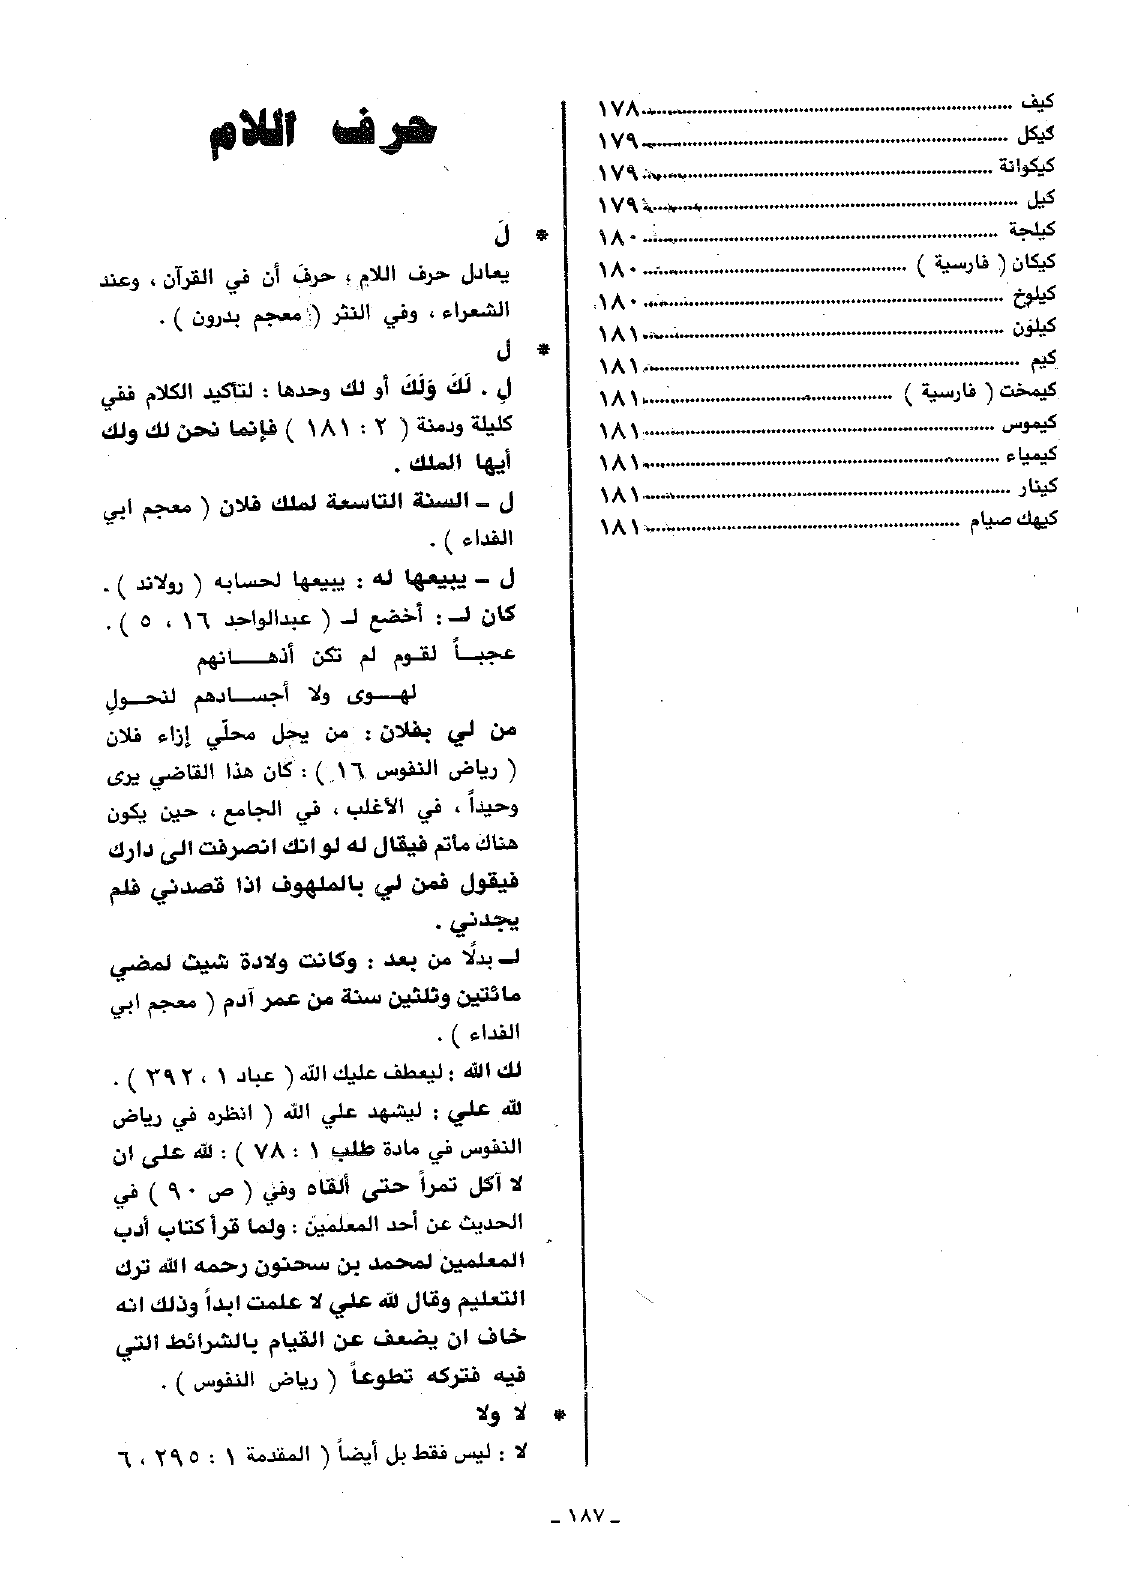 كيف ........ ١٧٨
كيكل ........ ١٧٩
كيكوانة ........ ١٧٩
كيل ........ ١٧٩
كيلجة ........ ١٨٠
كيكان ( فارسية ) ........ ١٨٠
كيلوخ ........ ١٨٠
كيلون ........ ١٨١
كيم ........ ١٨١
كيمخت ( فارسية ) ........ ١٨١
كيموس ........ ١٨١
كيمياء ........ ١٨١
كينار ........ ١٨١
كيهك صيام ........ ١٨١
حرف اللام
* لَ
يعادل حرف اللام ؛ حرفَ أن في القرآن ، وعند
الشعراء ، وفي النثر ( معجم بدرون ) .
* ل
لِ . لَكَ وَلَكَ أو لك وحدها : لتأكيد الكلام ففي
كليلة ودمنة ( ٢ : ١٨١ ) فإنما نحن لك ولك
أيها الملك .
ل – السنة التاسعة لملك فلان ( معجم ابي
الفداء ) .
ل – يبيعها له : يبيعها لحسابه ( رولاند ) .
كان لـ : أخضع لـ ( عبدالواحد ١٦ ، ٥ ) .
عجبـــاً لقـوم لم تكن أذهـــانهم
لهــوى ولا أجســادهم لنحــولِ
من لي بفلان : من يحل محلّي إزاء فلان
( رياض النفوس ١٦ ) : كان هذا القاضي يرى
وحيداً ، في الأغلب ، في الجامع ، حين يكون
هناك مأتم فيقال له لو انك انصرفت الى دارك
فيقول فمن لي بالملهوف اذا قصدني فلم
يجدني .
لـ بدلًا من بعد : وكانت ولادة شيث لمضي
مائتين وثلثين سنة من عمر آدم ( معجم ابي
الفداء ) .
لك الله : ليعطف عليك الله ( عباد ١ ، ٣٩٢ ) .
لله علي : ليشهد علي الله ( انظره في رياض
النفوس في مادة طلب ١ : ٧٨ ) : لله على ان
لا آكل تمراً حتى ألقاه وفي ( ص ٩٠ ) في
الحديث عن أحد المعلمين : ولما قرأ كتاب أدب
المعلمين لمحمد بن سحنون رحمه الله ترك
التعليم وقال لله علي لا علمت ابداً وذلك انه
خاف ان يضعف عن القيام بالشرائط التي
فيه فتركه تطوعاً ( رياض النفوس ) .
* لا ولا
لا : ليس فقط بل أيضاً ( المقدمة ١ : ٢٩٥ ، ٦
ـ ١٨٧ ـ